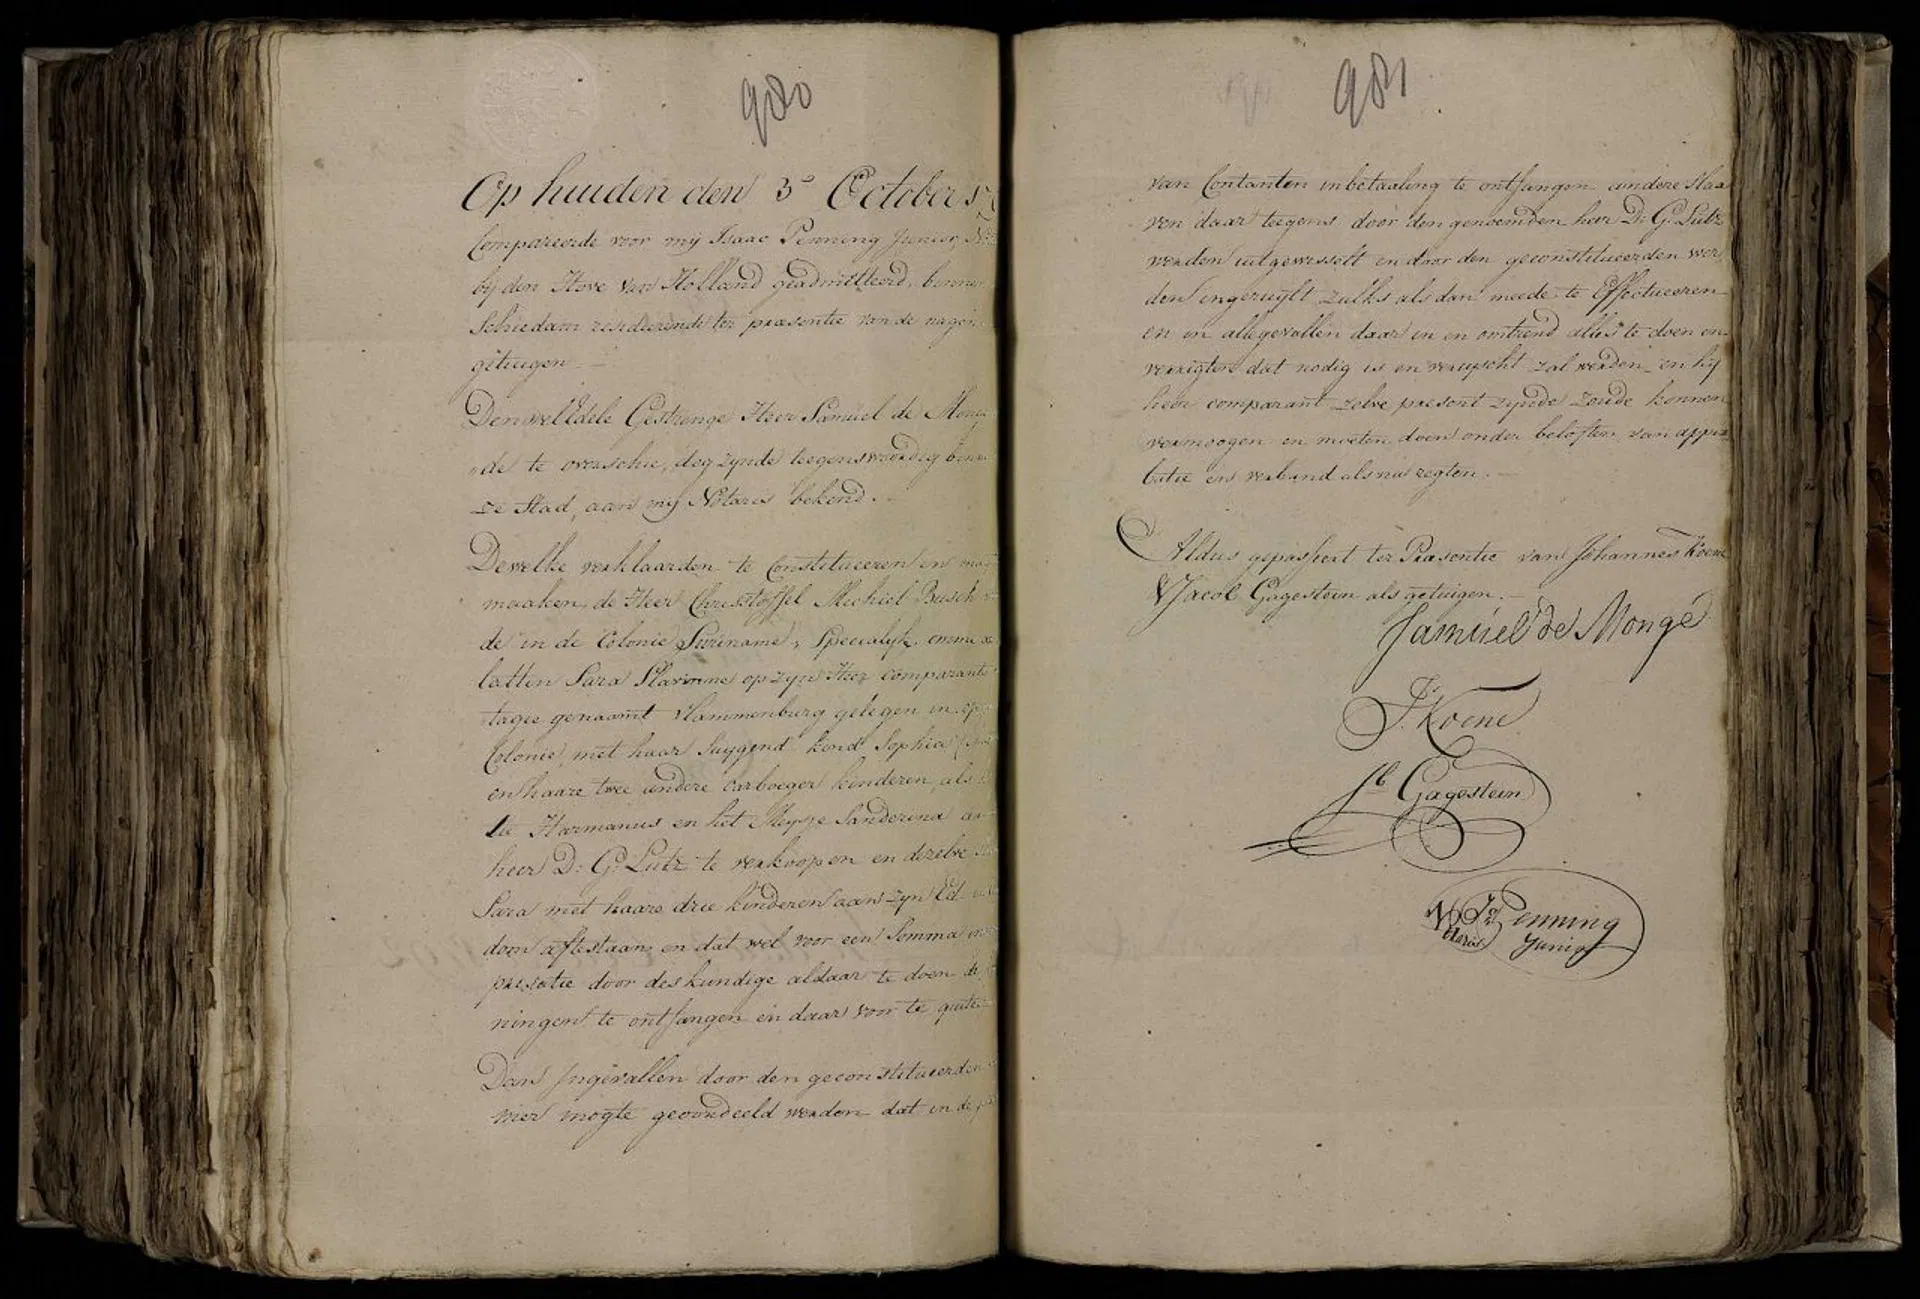 980
Op huiden den 3e October 17
Compareerde voor mij Isaac Penning Junior, Not
bij den Hove van Holland geadmitteerd, binnen
Schiedam resideerende ter præsentie van de nagen
getuigen.
Den welEdele Gestrenge Heer Samuel de Monge
de te overschie, dog zynde teegenswoordig binn
ze Stad, aan mij Notaris bekend.
Dewelke verklaarden te Constitueeren en mag
maaken, de Heer Christoffel Michiel Busch
de in de Colonie Suriname, Specialyk omme de
latten Sara Slavinne op zijn Heer comparants
tagie genaamt Vlammenburg gelegen in
Colonie, met haar Suygend kind Sophia
en haare twee andere carboeger kinderen, als
Harmanus en het Meysje Sanderina aan
heer D: G: Lutz te verkoopen en dezelve
Sara met haare drie kinderen aan zyn Ed
dom aftestaan, en dat wel voor een Somma
prisatie door deskundige aldaar te doen de
ningen te ontfangen en daar voor te quite
Dan Ingevallen door den geconstitueerden
vier mogte geoordeeld werden dat in de
981
van Contanten inbetaaling te ontfangen andere Slaa
ven daar teegens door den genoemden heer D: G: Lutz
werden uitgewisselt en door den geconstitueerden wer
den ingeruylt zulks als dan meede te Effectueeren
en in allegevallen daar in en omtrend alles te doen en
verrigten dat nodig is en vereyscht zal werden en hij
heer comparant zelve present zynde zoude konnen
vermoogen en moeten doen onder beloften van appro
batie en verband als na regten.
Aldus gepasseert ter Præsentie van Johannes Koene
& Jacob Gagestein als getuigen.
Samuel de Mongé
J. Koene
Jb Gagestein
Js Penning
Notaris Junior